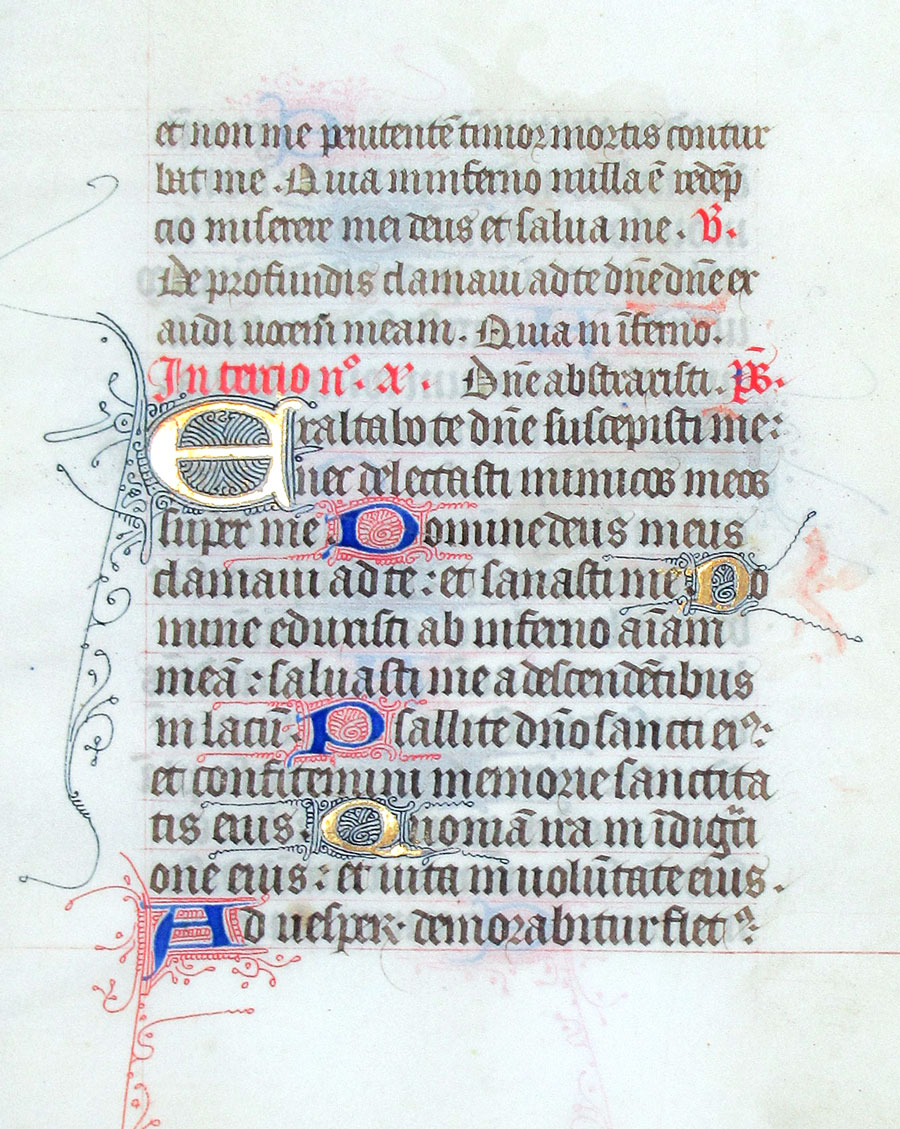 et non me penitentē timor mortis contur
bat me. Quia in inferno nulla ē redēp
cio miserere mei deus et salua me. V.
De profundis clamaui ad te dn̄e dn̄e ex
audi uocem̄ meam. Quia in īferno.
In tercio nº. x. Dn̄e abstraxisti. p̄s.
Exaltabo te dn̄e suscepisti me:
nec delectasti inimicos meos
super me Domine deus meus
clamaui ad te: et sanasti me Do
mine eduxisti ab inferno aīam
meā: saluasti me a descendētibus
in lacū. Psallite dn̄o sancti eiꝰ:
et confitemini memorie sanctita
tis eius. Quoniā ira in īdigͣti
one eius: et uita in uolūtate eius.
Ad uesperꝝ demorabitur fletꝰ: